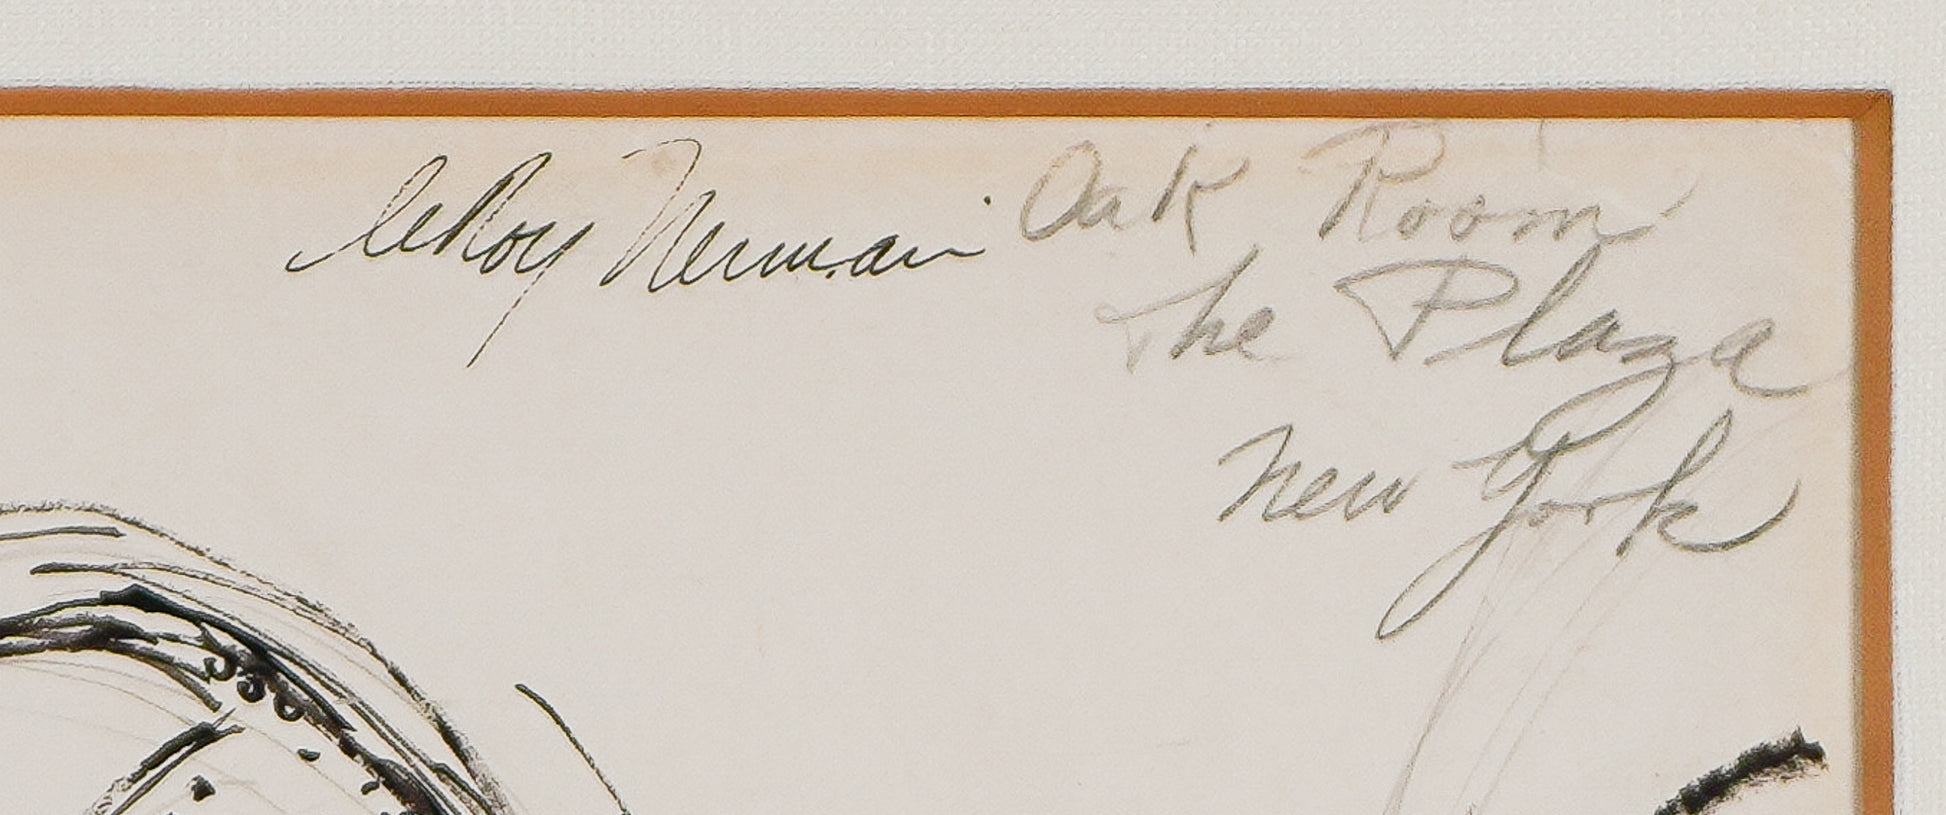 leRoy Neiman
Oak Room
The Plaza
New York